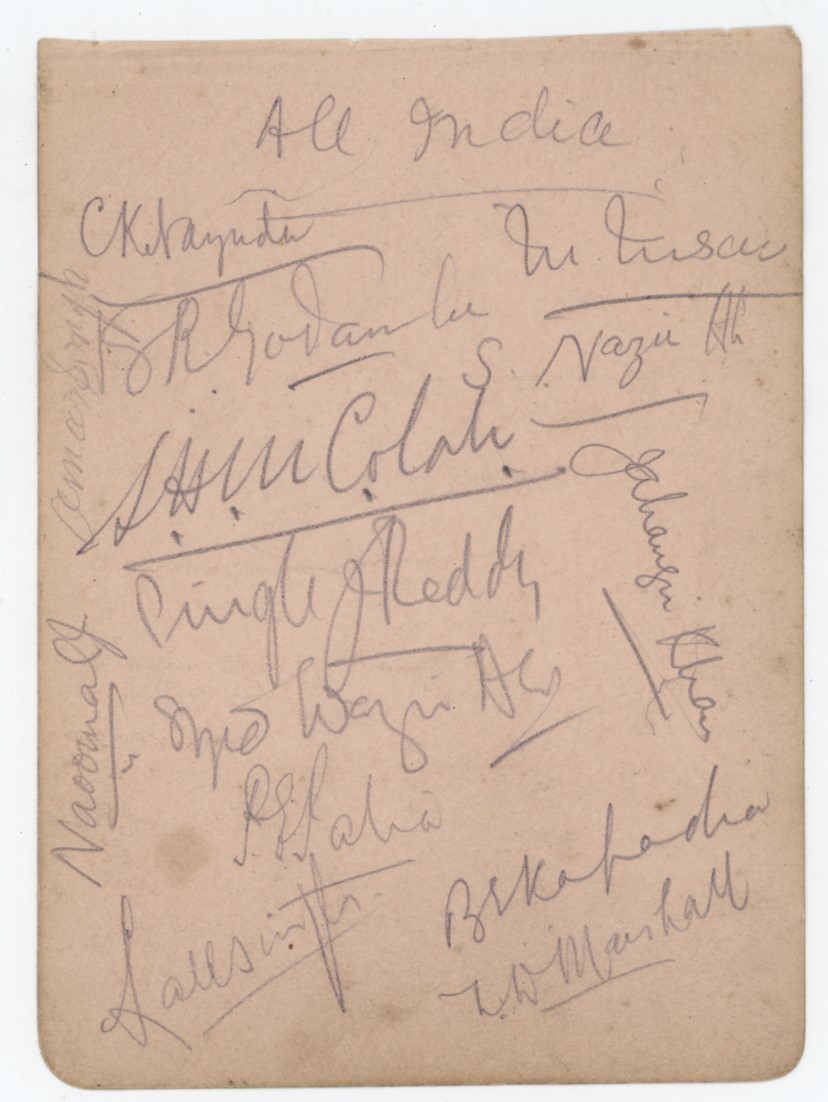 All India
CK Nayudu
M. Nissar
S R Godambe
S. Nazir Ali
Umar Singh
S.H.M. Colah
Jahangir Khan
Pingle Reddy
Naoomall
Syed Wazir Ali
P.E. Palia
B E Kapadia
Lallsingh
N. D Marshall